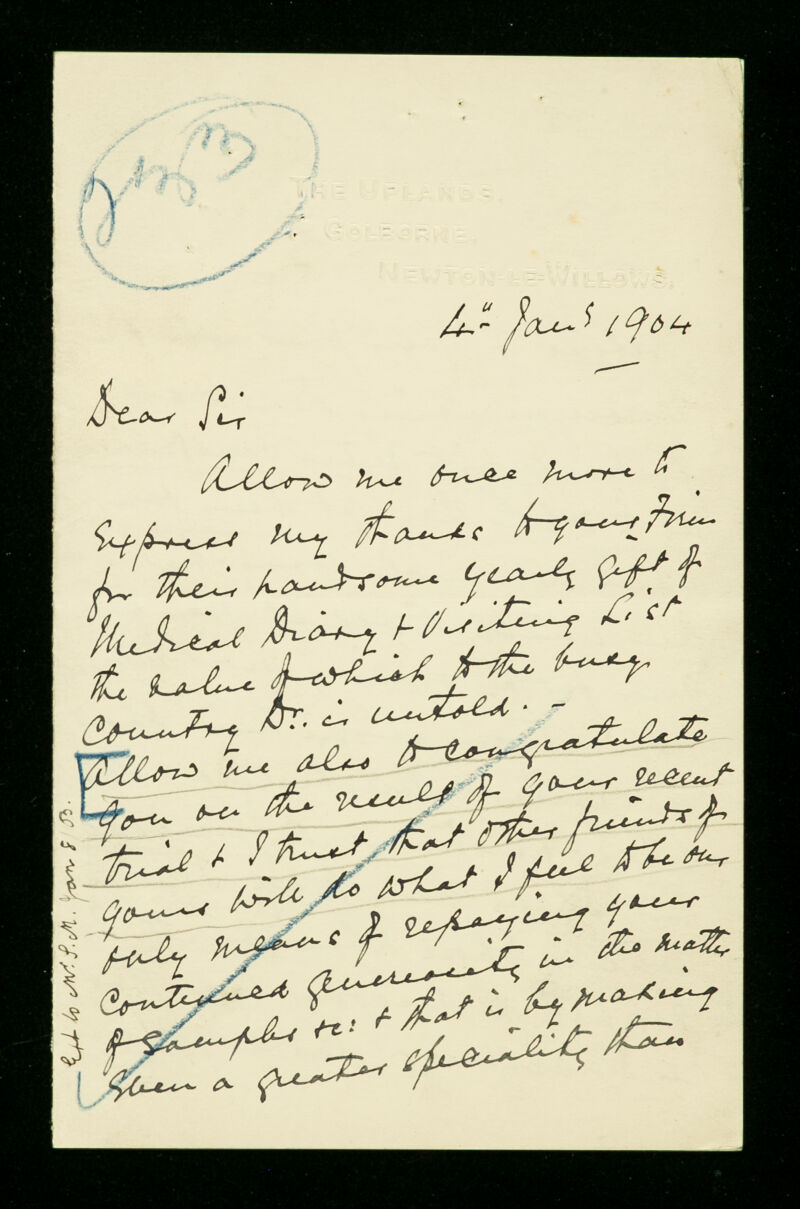 THE UPLANDS,
GOLBORNE,
NEWTON-LE-WILLOWS.
4th Jany 1904
Dear Sir
Allow me once more to
express my thanks to your Firm
for their handsome yearly gift of
Medical Diary & Visiting List
the value of which to the busy
country Dr. is untold. -
Allow me also to congratulate
you on the result of your recent
trial & I trust that other friends of
yours will do what I feel to be our
only means of repaying your
continued generosity in the matter
of samples &c: & that is by making
even a greater speciality than
Ext to Mr. S. M. Jan 8/03.